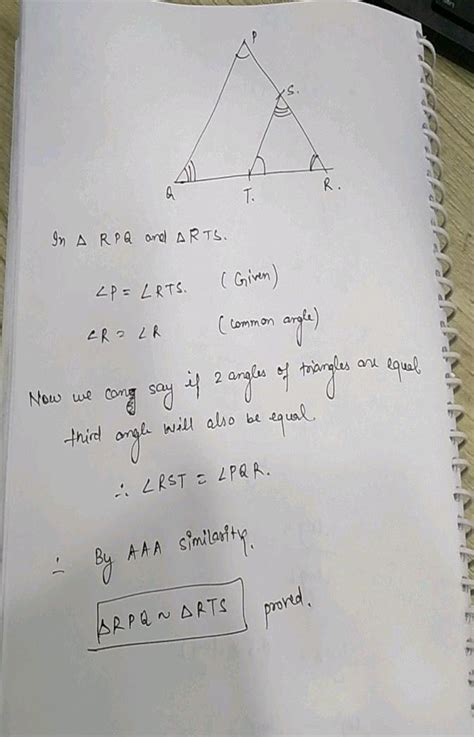 P
S.
Q
T.
R.
In △ RPQ and △RTS.
∠P = ∠RTS. (Given)
∠R = ∠R (common angle)
Now we can say if 2 angles of triangles are equal
third angle will also be equal.
∴ ∠RST = ∠PQR.
∴ By AAA similarity.
△RPQ ~ △RTS proved.